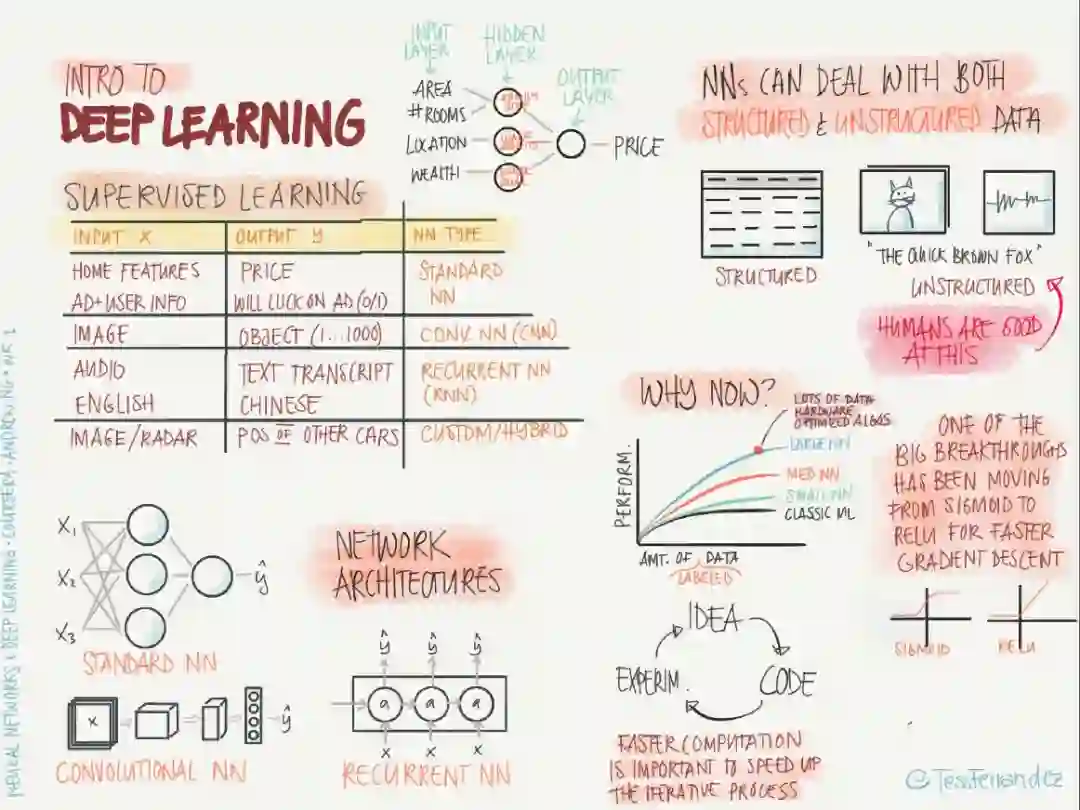 INTRO TO
DEEP LEARNING
INPUT LAYER
HIDDEN LAYER
OUTPUT LAYER
AREA
# ROOMS
LOCATION
WEALTH
PRICE
SUPERVISED LEARNING
INPUT X OUTPUT Y NN TYPE
HOME FEATURES PRICE STANDARD
AD+USER INFO WILL CLICK ON AD (0/1) NN
IMAGE OBJECT (1...1000) CONV. NN (CNN)
AUDIO TEXT TRANSCRIPT RECURRENT NN
ENGLISH CHINESE (RNN)
IMAGE/RADAR POS OF OTHER CARS CUSTOM/HYBRID
X1
X2
X3
ŷ
STANDARD NN
NETWORK
ARCHITECTURES
X
ŷ
CONVOLUTIONAL NN
ŷ ŷ ŷ
a a a
X X X
RECURRENT NN
NNs CAN DEAL WITH BOTH
STRUCTURED & UNSTRUCTURED DATA
STRUCTURED
"THE QUICK BROWN FOX"
UNSTRUCTURED
HUMANS ARE GOOD
AT THIS
WHY NOW?
LOTS OF DATA
HARDWARE
OPTIMIZED ALGOS
LARGE NN
MED NN
SMALL NN
CLASSIC ML
PERFORM.
AMT. OF DATA
LABELED
ONE OF THE
BIG BREAKTHROUGHS
HAS BEEN MOVING
FROM SIGMOID TO
RELU FOR FASTER
GRADIENT DESCENT
SIGMOID
RELU
IDEA
EXPERIM.
CODE
FASTER COMPUTATION
IS IMPORTANT TO SPEED UP
THE ITERATIVE PROCESS
NEURAL NETWORKS & DEEP LEARNING · COURSERA · ANDREW NG · NR 1
©TessFerrandez